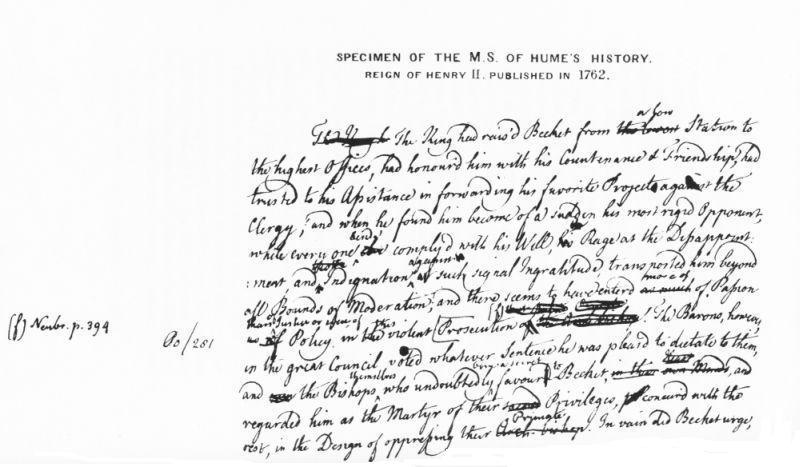 SPECIMEN OF THE M.S. OF HUME'S HISTORY.
REIGN OF HENRY II. PUBLISHED IN 1762.
a low
The King had rais'd Becket from the lowest Station to
the highest Offices, had honour'd him with his Countenance & Friendship, had
trusted to his Assistance in forwarding his favorite Project against the
Clergy; and when he found him become of a sudden his most rigid Opponent,
beside
while every one comply'd with his Will, his Rage at the Disappoint:
against
:ment, and Indignation at such signal Ingratitude, transported him beyond
more of
all Bounds of Moderation; and there seems to have enter'd as much of Passion
than Justice or even of this
(f) Neubr. p. 394
Po/251
of Policy, in the violent Prosecution (f) The Barons, however,
in the great Council, voted whatever Sentence he was pleas'd to dictate to them;
themselves
and the Bishops, who undoubtedly favour'd Becket, in their own Minds, and
regarded him as the Martyr of their Privileges, concur'd with the
Primate
rest, in the Design of oppressing their Arch-bishop. In vain did Becket urge,